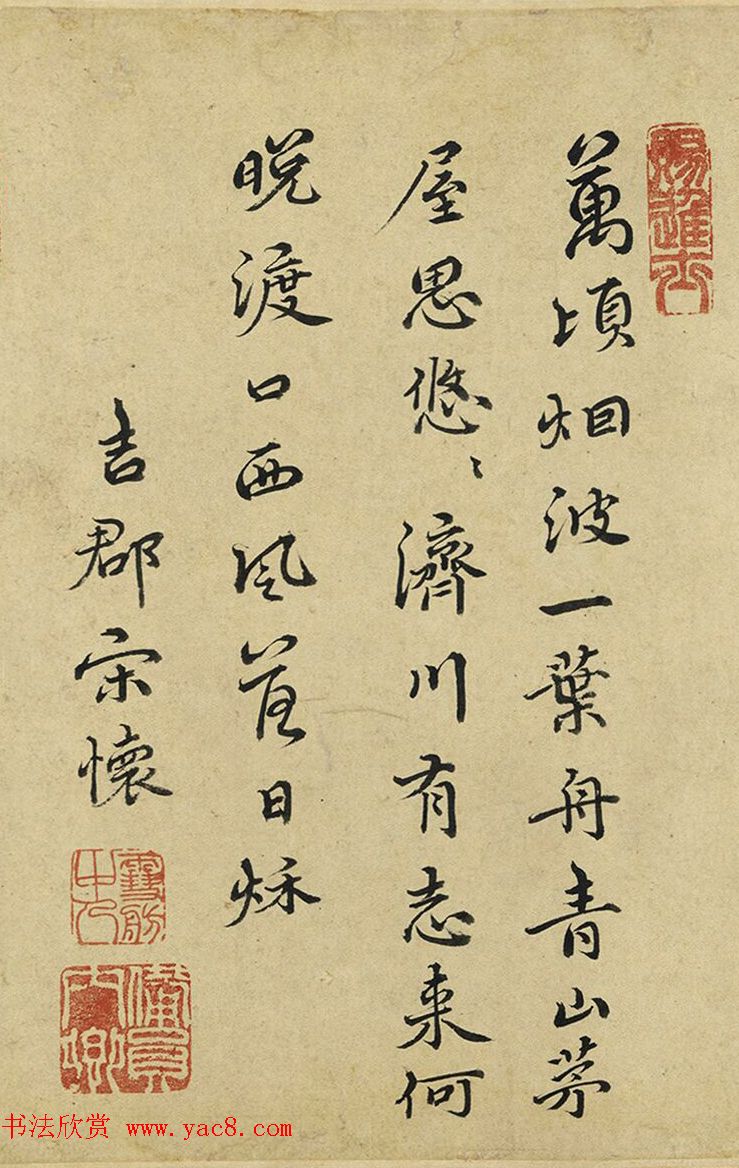 萬頃烟波一葉舟青山茅
屋思悠〻濟川有志来何
晚渡口西風落日秌
吉郡宋懷
賜進士
书法欣赏 www.yac8.com